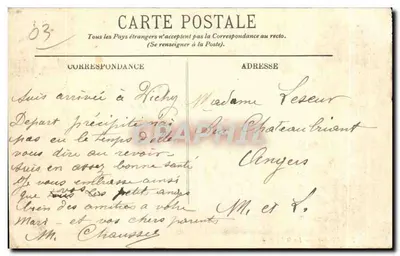 03
CARTE POSTALE
Tous les Pays étrangers n'acceptent pas la Correspondance au recto.
(Se renseigner à la Poste).
CORRESPONDANCE
ADRESSE
Suis arrivée à Vichy
Départ précipité n'ai
pas eu le temps de
vous dire au revoir
Suis en assez bonne santé
Je vous embrasse ainsi
que vos petit
bien des amitiés à votre
Mari et vos chers parents
M. Chausse
Madame Leseur
Chateaubriant
Angers
M. et L.